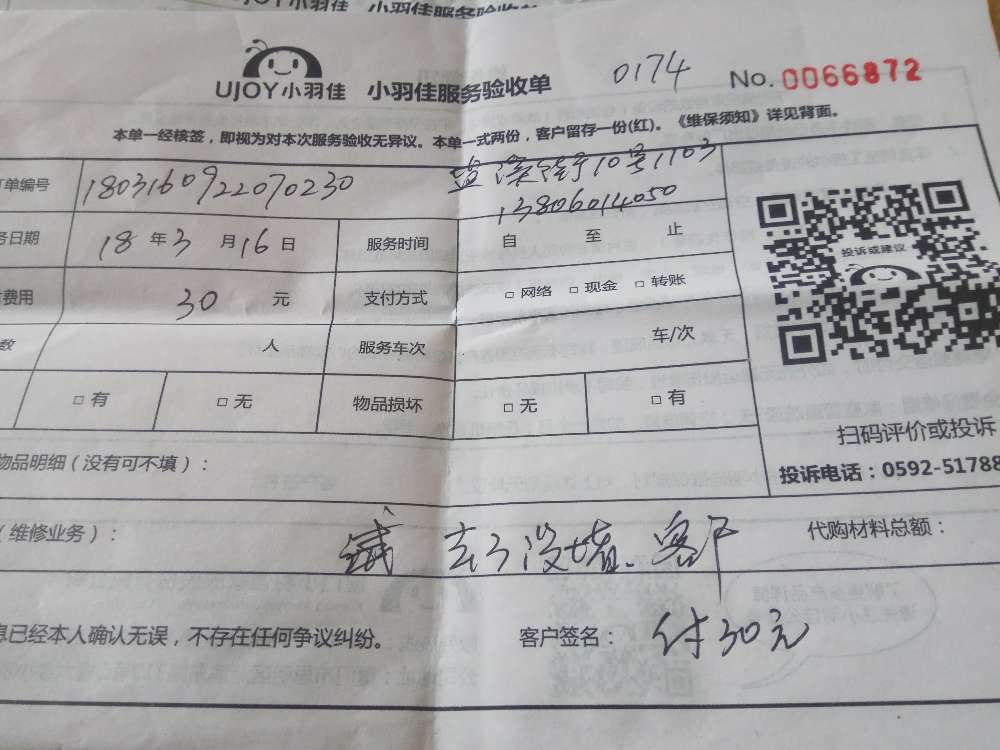 UJOY小羽佳 小羽佳服务验收单 0174 No. 0066872
本单一经核签，即视为对本次服务验收无异议。本单一式两份，客户留存一份(红)。《维保须知》详见背面。
订单编号 1803160922070230 10号1103
13806014050
务日期 18 年 3 月 16 日 服务时间 自 至 止
费用 30 元 支付方式 □ 网络 □ 现金 □ 转账
数 人 服务车次 车/次
□ 有 □ 无 物品损坏 □ 无 □ 有
投诉或建议
扫码评价或投诉
投诉电话：0592-51788
物品明细（没有可不填）：
（维修业务）： 去了没堵. 客户 代购材料总额：
息已经本人确认无误，不存在任何争议纠纷。 客户签名： 付30元